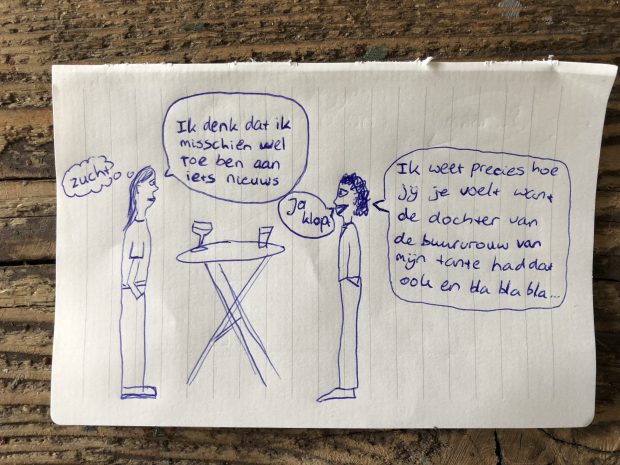 zucht
Ik denk dat ik
misschien wel
toe ben aan
iets nieuws
Ja
klopt
Ik weet precies hoe
jij je voelt want
de dochter van
de buurvrouw van
mijn tante had dat
ook en bla bla bla...